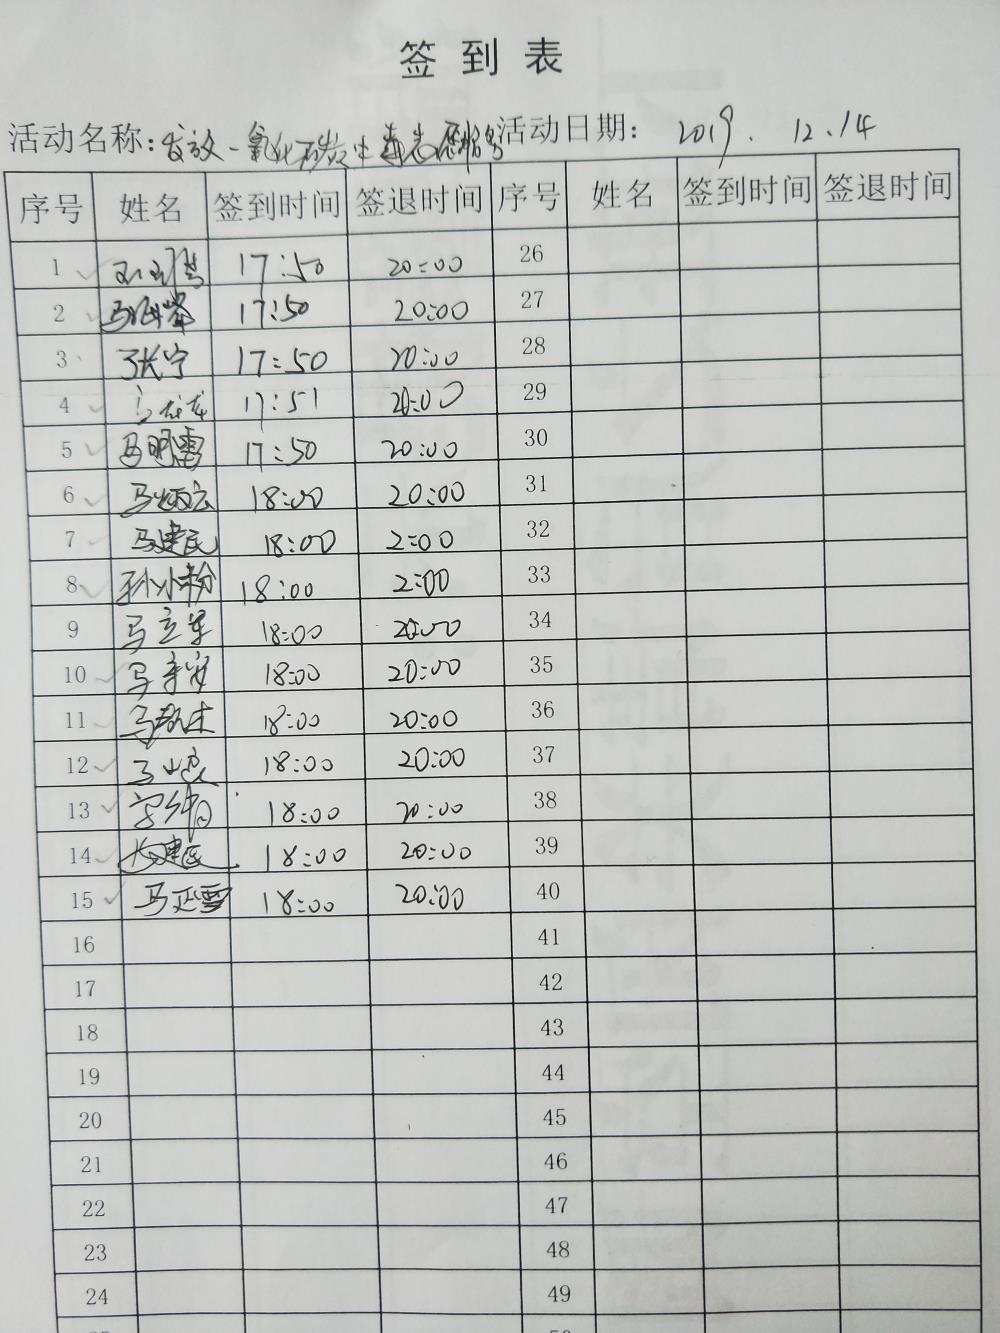 签到表
活动名称:发放一氧化碳 活动日期: 2019.12.14
序号 姓名 签到时间 签退时间 序号 姓名 签到时间 签退时间
1 17:50 20:00 26
2 马 17:50 20:00 27
3 张宁 17:50 20:00 28
4 17:51 20:00 29
5 马明雷 17:50 20:00 30
6 马炳宏 18:00 20:00 31
7 马建民 18:00 2:00 32
8 孙小粉 18:00 2:00 33
9 马立军 18:00 20:00 34
10 马 18:00 20:00 35
11 马 18:00 20:00 36
12 马 18:00 20:00 37
13 18:00 20:00 38
14 建 18:00 20:00 39
15 马延雪 18:00 20:00 40
16 41
17 42
18 43
19 44
20 45
21 46
22 47
23 48
24 49